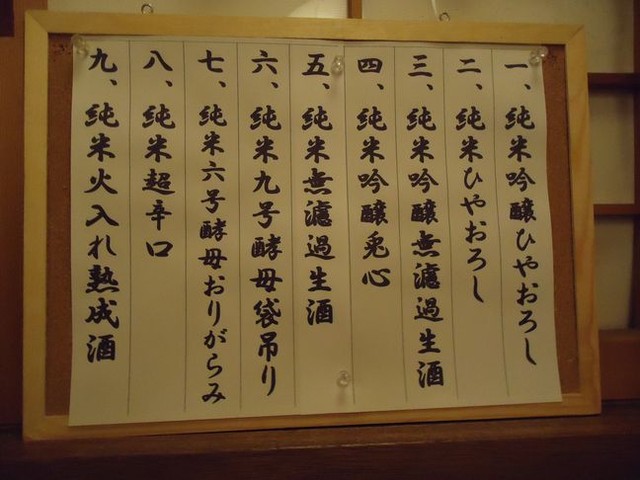 一、純米吟醸ひやおろし
二、純米ひやおろし
三、純米吟醸無濾過生酒
四、純米吟醸兎心
五、純米無濾過生酒
六、純米九号酵母袋吊り
七、純米六号酵母おりがらみ
八、純米超辛口
九、純米火入れ熟成酒